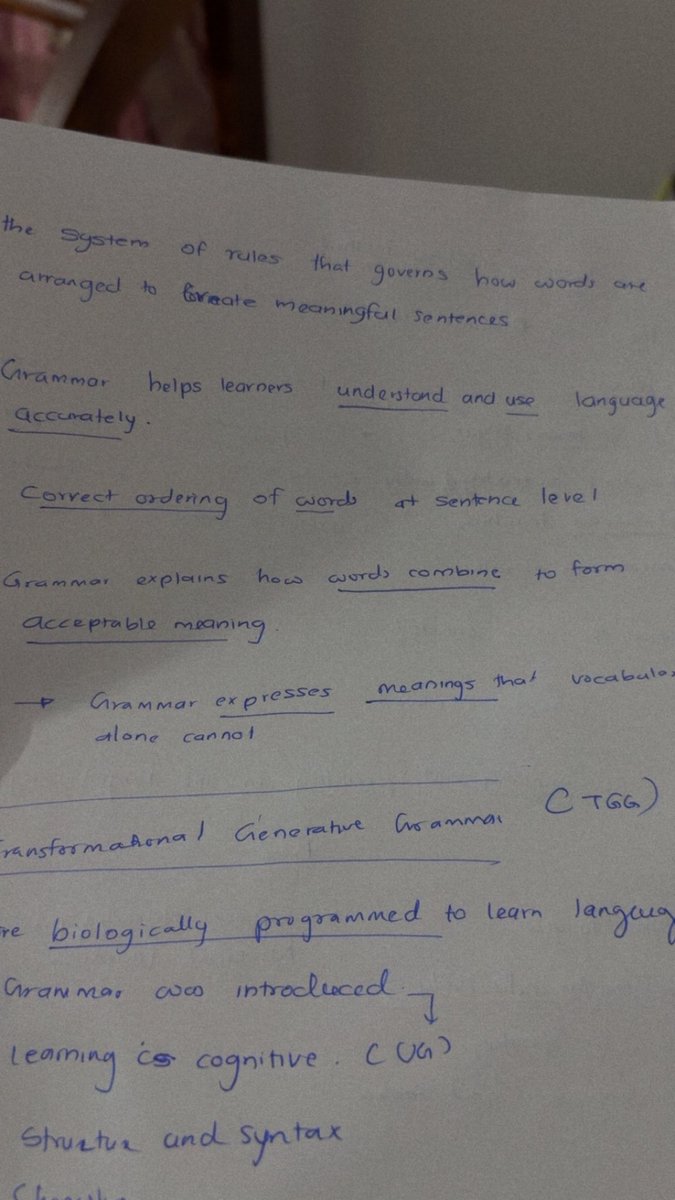 the system of rules that governs how words are
arranged to create meaningful sentences
Grammar helps learners understand and use language
accurately.
Correct ordering of words at sentence level
Grammar explains how words combine to form
acceptable meaning.
→ Grammar expresses meanings that vocabular
alone cannot
ransformational Generative Grammar (TGG)
re biologically programmed to learn languag
Grammar was introduced.
learning is cognitive. (UG)
Structure and syntax